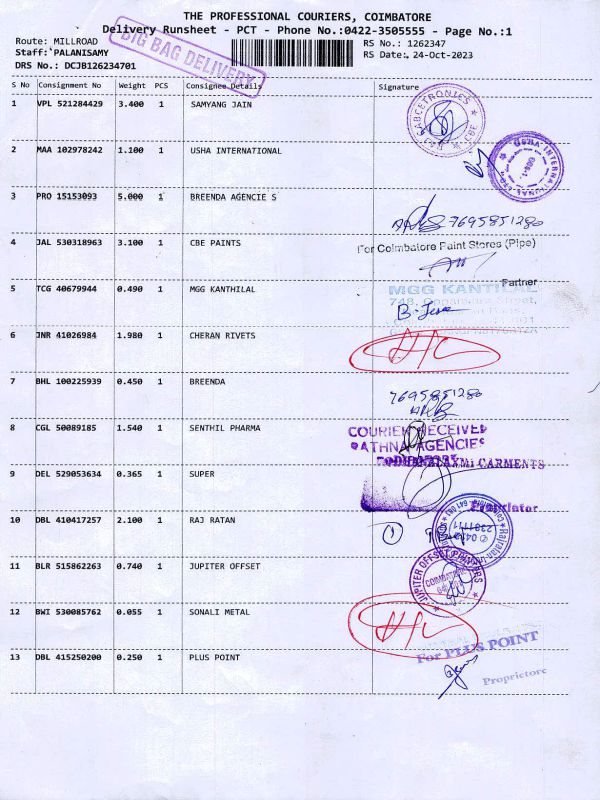 THE PROFESSIONAL COURIERS, COIMBATORE
Delivery Runsheet - PCT - Phone No.:0422-3505555 - Page No.:1
Route: MILLROAD
RS No.: 1262347
Staff: PALANISAMY
RS Date:. 24-Oct-2023
DRS No.: DCJB126234701
BIG BAG DELIVERY
S No Consignment No Weight PCS Consignee Details Signature
1 VPL 521284429 3.400 1 SAMYANG JAIN
2 MAA 102978242 1.100 1 USHA INTERNATIONAL
USHA INTERNATIONAL LTD.
3 PRO 15153093 5.000 1 BREENDA AGENCIE S
7695851280
4 JAL 530318963 3.100 1 CBE PAINTS
For Coimbatore Paint Stores (Pipe)
Partner
5 TCG 40679944 0.490 1 MGG KANTHILAL
MGG KANTILAL
6 JNR 41026984 1.980 1 CHERAN RIVETS
7 BHL 100225939 0.450 1 BREENDA
7695851280
8 CGL 50089185 1.540 1 SENTHIL PHARMA
COURIER RECEIVED
AGENCIES
9 DEL 529053634 0.365 1 SUPER
Proprietor
10 DBL 410417257 2.100 1 RAJ RATAN
1
11 BLR 515862263 0.740 1 JUPITER OFFSET
JUPITER OFFSET PRINTERS
COIMBATORE
12 BWI 530085762 0.055 1 SONALI METAL
13 DBL 415250200 0.250 1 PLUS POINT
For PLUS POINT
Proprietors